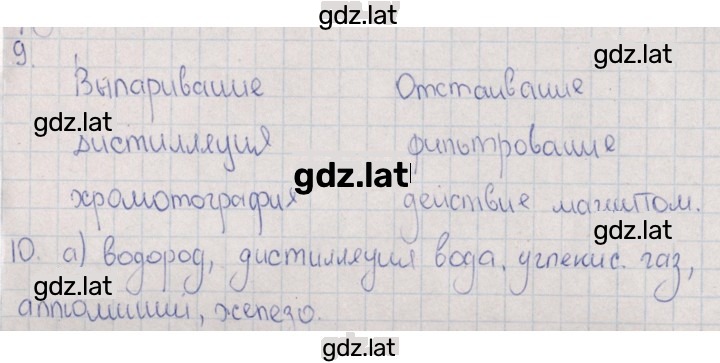 gdz.lat
9.
gdz.lat
Выпаривание Отстаивание
gdz.lat
gdz.lat
дистилляция фильтрование
gdz.lat
хромотография действие магнитом.
gdz.lat
10. а) водород, дистилляция вода, углекис. газ,
gdz.lat
алюминий, железо.
gdz.lat